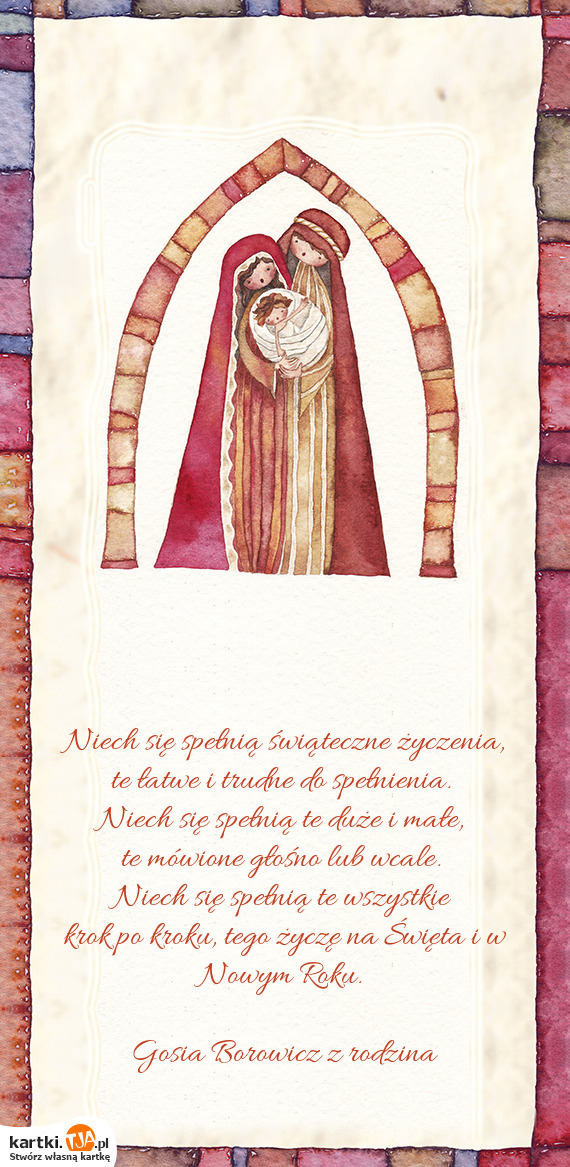 Niech się spełnią świąteczne życzenia,
te łatwe i trudne do spełnienia.
Niech się spełnią te duże i małe,
te mówione głośno lub wcale.
Niech się spełnią te wszystkie
krok po kroku, tego życzę na Święta i w
Nowym Roku.
Gosia Borowicz z rodzina
kartki.TJA.pl
Stwórz własną kartkę